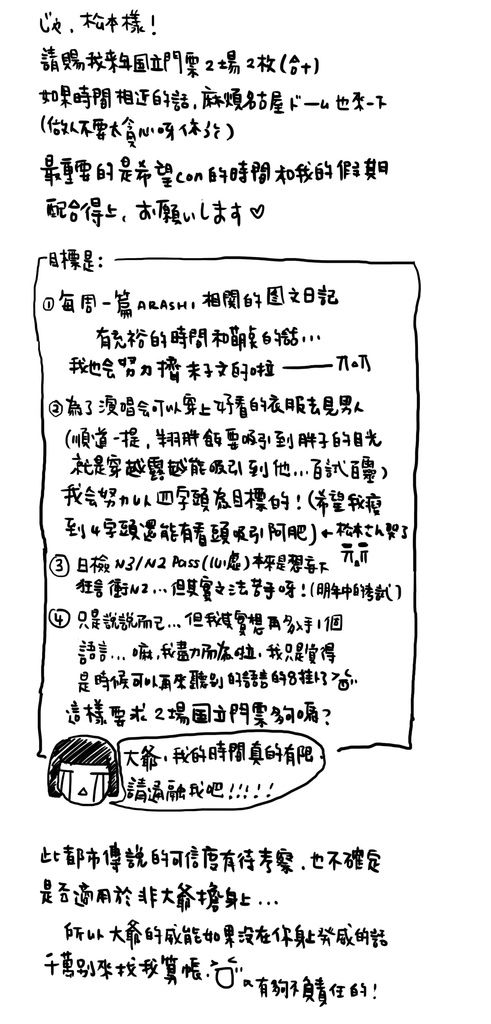 じゃ、松本樣！
請賜我來年国立門票2場2枚(合+)
如果時間相近的話，麻煩名古屋ドーム也來一下
(做人不要太貪心呀你了)
最重要的是希望con的時間和我的假期
配合得上、お願いします♡
目標是：
①每周一篇ARASHI相關的图文日記
有充裕的時間和萌點的話…
我也会努力擠未子文的啦 ——— π_π
②為了演唱会可以穿上好看的衣服去見男人
(順道一提，翔胖飯要吸引到胖子的目光
就是穿越露越能吸引到他…百試百靈)
我会努力以四字頭為目標的！(希望我瘦
到4字頭還能有看頭吸引阿肥) ←松本さん哭了
③日檢N3/N2 Pass(心虛)本來是想要下
狂言衝N2…但其實文法苦手呀！(明年中的考試)
④只是說說而已…但我其實想再多入手1個
語言…嘛，我盡力而為啦，我只是覺得
是時候可以再來聽別的語言的8挂了
這樣要求2場国立門票夠嗎？
大爺，我的時間真的有限，
請通融我吧！！！！！
此都市傳說的可信度有待考察，也不確定
是否適用於非大爺擔身上…
所以大爺的威能如果沒在你身上発威的話
千萬別來找我算帳.
有夠不負責任的！